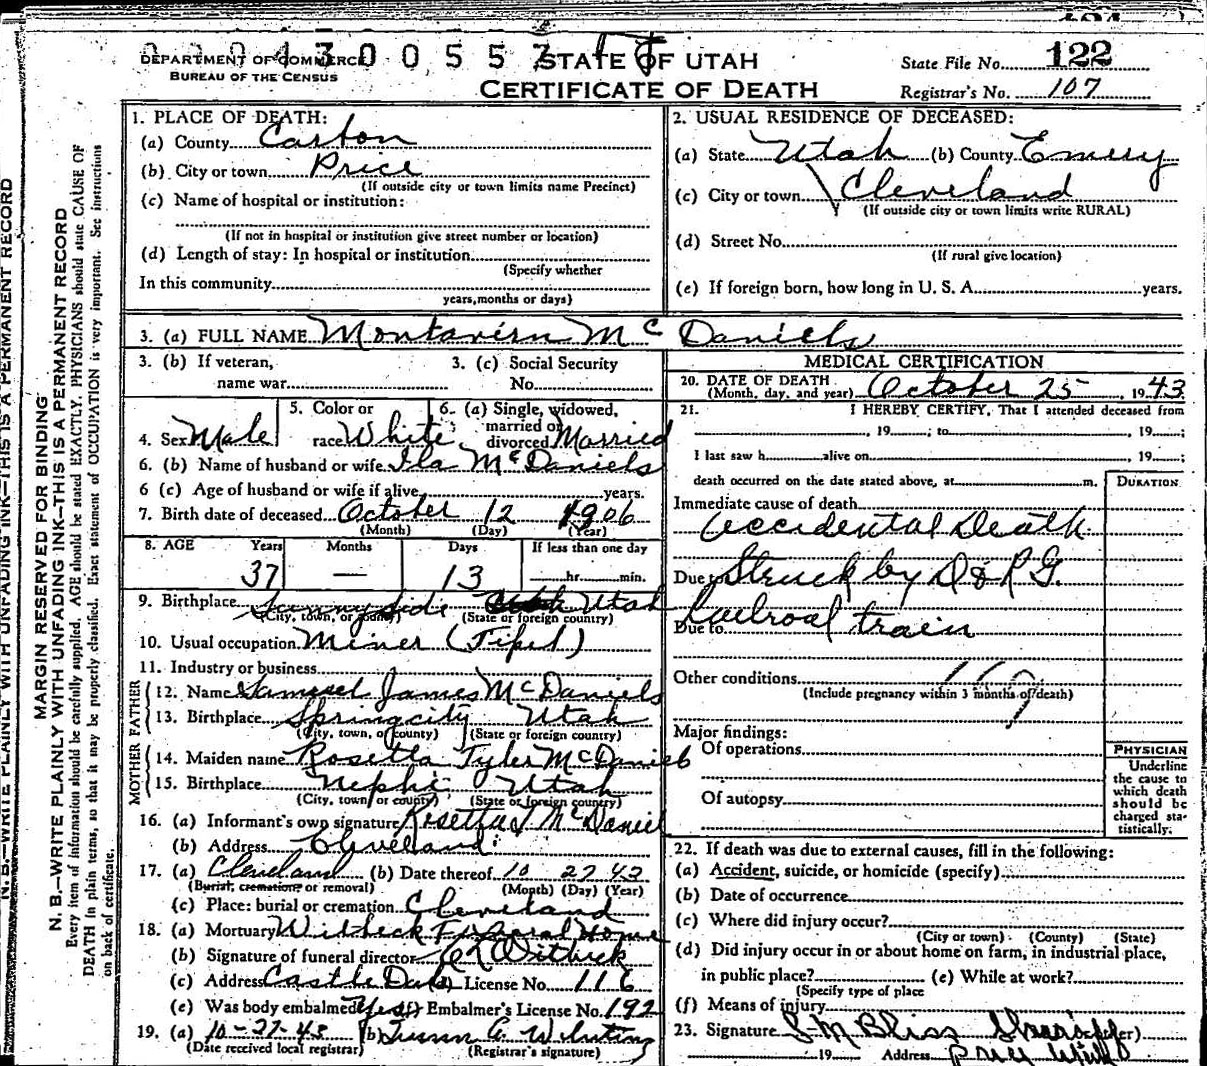 122
0 0 0 4 3 0 0 5 5 7
DEPARTMENT OF COMMERCE
BUREAU OF THE CENSUS
STATE OF UTAH
CERTIFICATE OF DEATH
State File No. 122
Registrar's No. 107
N. B.—WRITE PLAINLY WITH UNFADING INK—THIS IS A PERMANENT RECORD
MARGIN RESERVED FOR BINDING
N. B.—WRITE PLAINLY WITH UNFADING INK—THIS IS A PERMANENT RECORD
Every item of information should be carefully supplied. AGE should be stated EXACTLY. PHYSICIANS should state CAUSE OF
DEATH in plain terms, so that it may be properly classified. Exact statement of OCCUPATION is very important. See instructions
on back of certificate.
1. PLACE OF DEATH:
(a) County Carbon
(b) City or town Price
(If outside city or town limits name Precinct)
(c) Name of hospital or institution:
(If not in hospital or institution give street number or location)
(d) Length of stay: In hospital or institution
(Specify whether
In this community
years, months or days)
2. USUAL RESIDENCE OF DECEASED:
(a) State Utah (b) County Emery
(c) City or town Cleveland
(If outside city or town limits write RURAL)
(d) Street No.
(If rural give location)
(e) If foreign born, how long in U. S. A. years.
3. (a) FULL NAME Montavirn McDaniels
3. (b) If veteran,
name war
3. (c) Social Security
No.
4. Sex Male
5. Color or
race White
6. (a) Single, widowed,
married or
divorced Married
6. (b) Name of husband or wife Ila McDaniels
6 (c) Age of husband or wife if alive years.
7. Birth date of deceased October 12 1906
(Month) (Day) (Year)
8. AGE Years Months Days If less than one day
37 — 13 hr. min.
9. Birthplace Sunnyside Utah
(City, town, or county) (State or foreign country)
10. Usual occupation Miner (Tipel)
11. Industry or business
FATHER
12. Name Samuel James McDaniels
13. Birthplace Spring city Utah
(City, town, or county) (State or foreign country)
MOTHER
14. Maiden name Rosetta Tyler McDaniels
15. Birthplace Nephi Utah
(City, town or county) (State or foreign country)
16. (a) Informant's own signature Rosetta T McDaniel
(b) Address Cleveland
17. (a) Cleveland (b) Date thereof 10 27 43
(Burial, cremation, or removal) (Month) (Day) (Year)
(c) Place: burial or cremation Cleveland
18. (a) Mortuary Witbeck Funeral Home
(b) Signature of funeral director Witbeck
(c) Address Castle Dale (d) License No. 116
(e) Was body embalmed Yes (f) Embalmer's License No. 192
19. (a) 10-27-43 (b)
(Date received local registrar) (Registrar's signature)
MEDICAL CERTIFICATION
20. DATE OF DEATH
(Month, day, and year) October 25, 1943
21. I HEREBY CERTIFY, That I attended deceased from
19 ; to , 19 ;
I last saw h alive on , 19 ;
death occurred on the date stated above, at m.
DURATION
Immediate cause of death
accidental Death
Due to Struck by D & R G.
Due to railroad train
Other conditions
(Include pregnancy within 3 months of death)
Major findings:
Of operations
Of autopsy
PHYSICIAN
Underline
the cause to
which death
should be
charged sta-
tistically.
22. If death was due to external causes, fill in the following:
(a) Accident, suicide, or homicide (specify)
(b) Date of occurrence
(c) Where did injury occur?
(City or town) (County) (State)
(d) Did injury occur in or about home on farm, in industrial place,
in public place? (e) While at work?
(Specify type of place
(f) Means of injury
23. Signature S M Bliss Sheriff
19 Address Price Utah